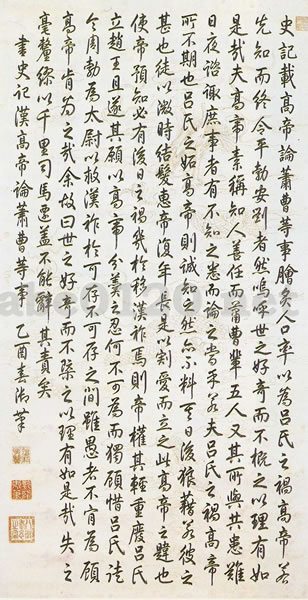 史記載高帝論蕭曹等事膾炙人口率以為呂氏之禍高帝若
先知而終令平勃安劉者然嗚呼世之好奇而不概之以理有如
是哉夫高帝素稱知人善任而蕭曹輩五人又其所與共患難
日夜諮諏庶事者有不知之悉而論之當乎若夫呂氏之禍高帝
所不期也呂氏之妬高帝則誠知之然亦不料至日後狼藉若彼之
甚也徒以微時結髮惠帝復年長是以割愛而立之此高帝之也
使帝預知必有後日之禍幾於移漢祚焉則帝權其輕重廢呂氏
立趙王且遂其願以高帝分羹之忍何不可為而獨顧惜呂氏
令周勃為太尉以救漢祚於可存不可存之間雖愚者不肯為顧
高帝肯為之哉余故曰世之好奇而不槩之以理有如是哉失之
毫釐繆以千里司馬遷蓋不能辭其責矣
書史記漢高帝論蕭曹等事 乙酉春御筆